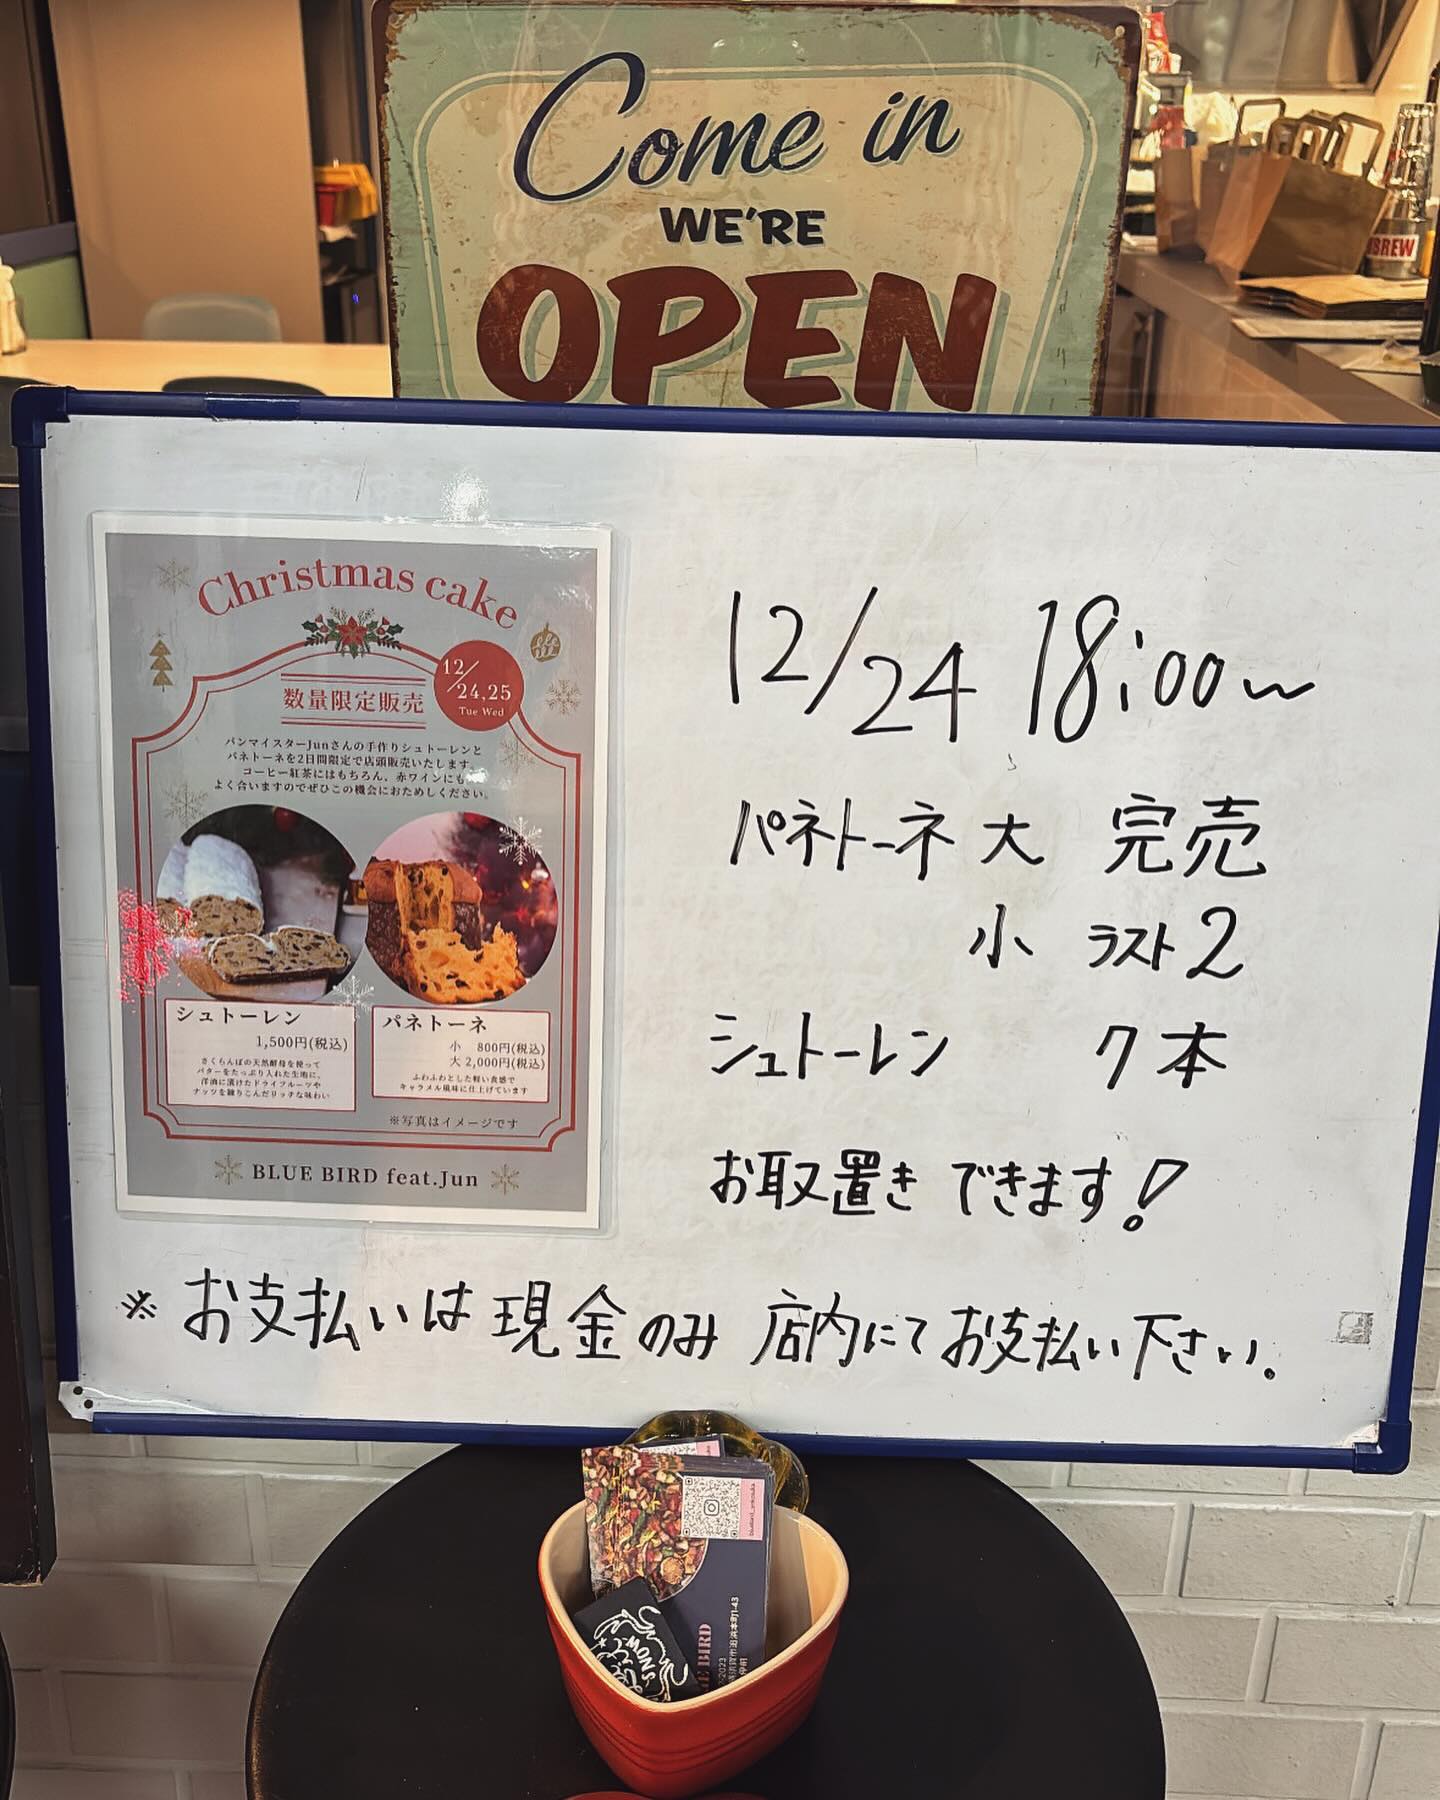 Come in
WE'RE
OPEN
BREW
Christmas cake
12/24,25
Tue Wed
数量限定販売
パンマイスターJunさんの手作りシュトーレンと
パネトーネを2日間限定で店頭販売いたします。
コーヒー紅茶にはもちろん、赤ワインにも
よく合いますのでぜひこの機会におためしください。
シュトーレン
1,500円(税込)
さくらんぼの天然酵母を使って
バターをたっぷり入れた生地に、
洋酒に漬けたドライフルーツや
ナッツを練りこんだリッチな味わい
パネトーネ
小 800円(税込)
大 2,000円(税込)
ふわふわとした軽い食感で
キャラメル風味に仕上げています
※写真はイメージです
BLUE BIRD feat.Jun
12/24 18:00〜
パネトーネ 大 完売
小 ラスト2
シュトーレン 7本
お取置き できます!
※お支払いは現金のみ 店内にてお支払い下さい。
BIRD